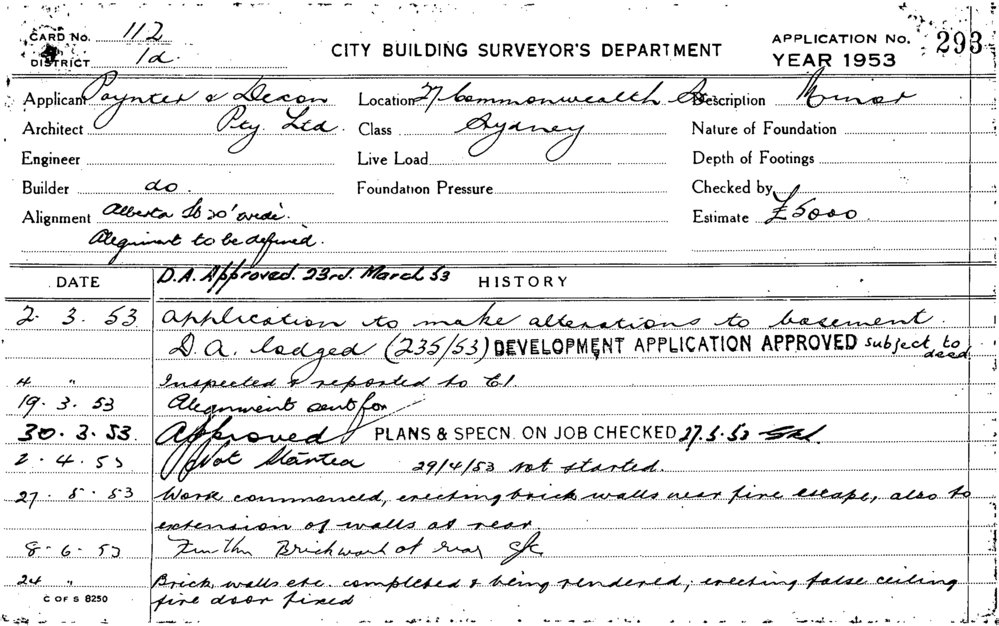 CARD No. 112
DISTRICT 1a.
CITY BUILDING SURVEYOR'S DEPARTMENT
APPLICATION No. 293
YEAR 1953
Applicant Poynter & Dexon Location 27 Commonwealth St Description Minor
Architect Pty. Ltd. Class Sydney Nature of Foundation
Engineer Live Load Depth of Footings
Builder do. Foundation Pressure Checked by
Alignment Alberta St 20' wide. Estimate £5000
Alignment to be defined.
D.A. Approved. 23rd. March 53
DATE HISTORY
2. 3. 53 Application to make alterations to basement.
D.A. lodged (235/53) DEVELOPMENT APPLICATION APPROVED subject to deed
4 " Inspected & reported to
19. 3. 53 Alignment sent for
30. 3. 53. Approved PLANS & SPECN. ON JOB CHECKED 27.5.53
2. 4. 53 Not Started 29/4/53 not started.
27. 5. 53 Work commenced, erecting brick walls near fire escape, also to
extension of walls at rear
8. 6. 53 Further Brickwork at rear
24 " Brick walls etc. completed & being rendered, erecting false ceiling
fire door fixed
C OF S 8250